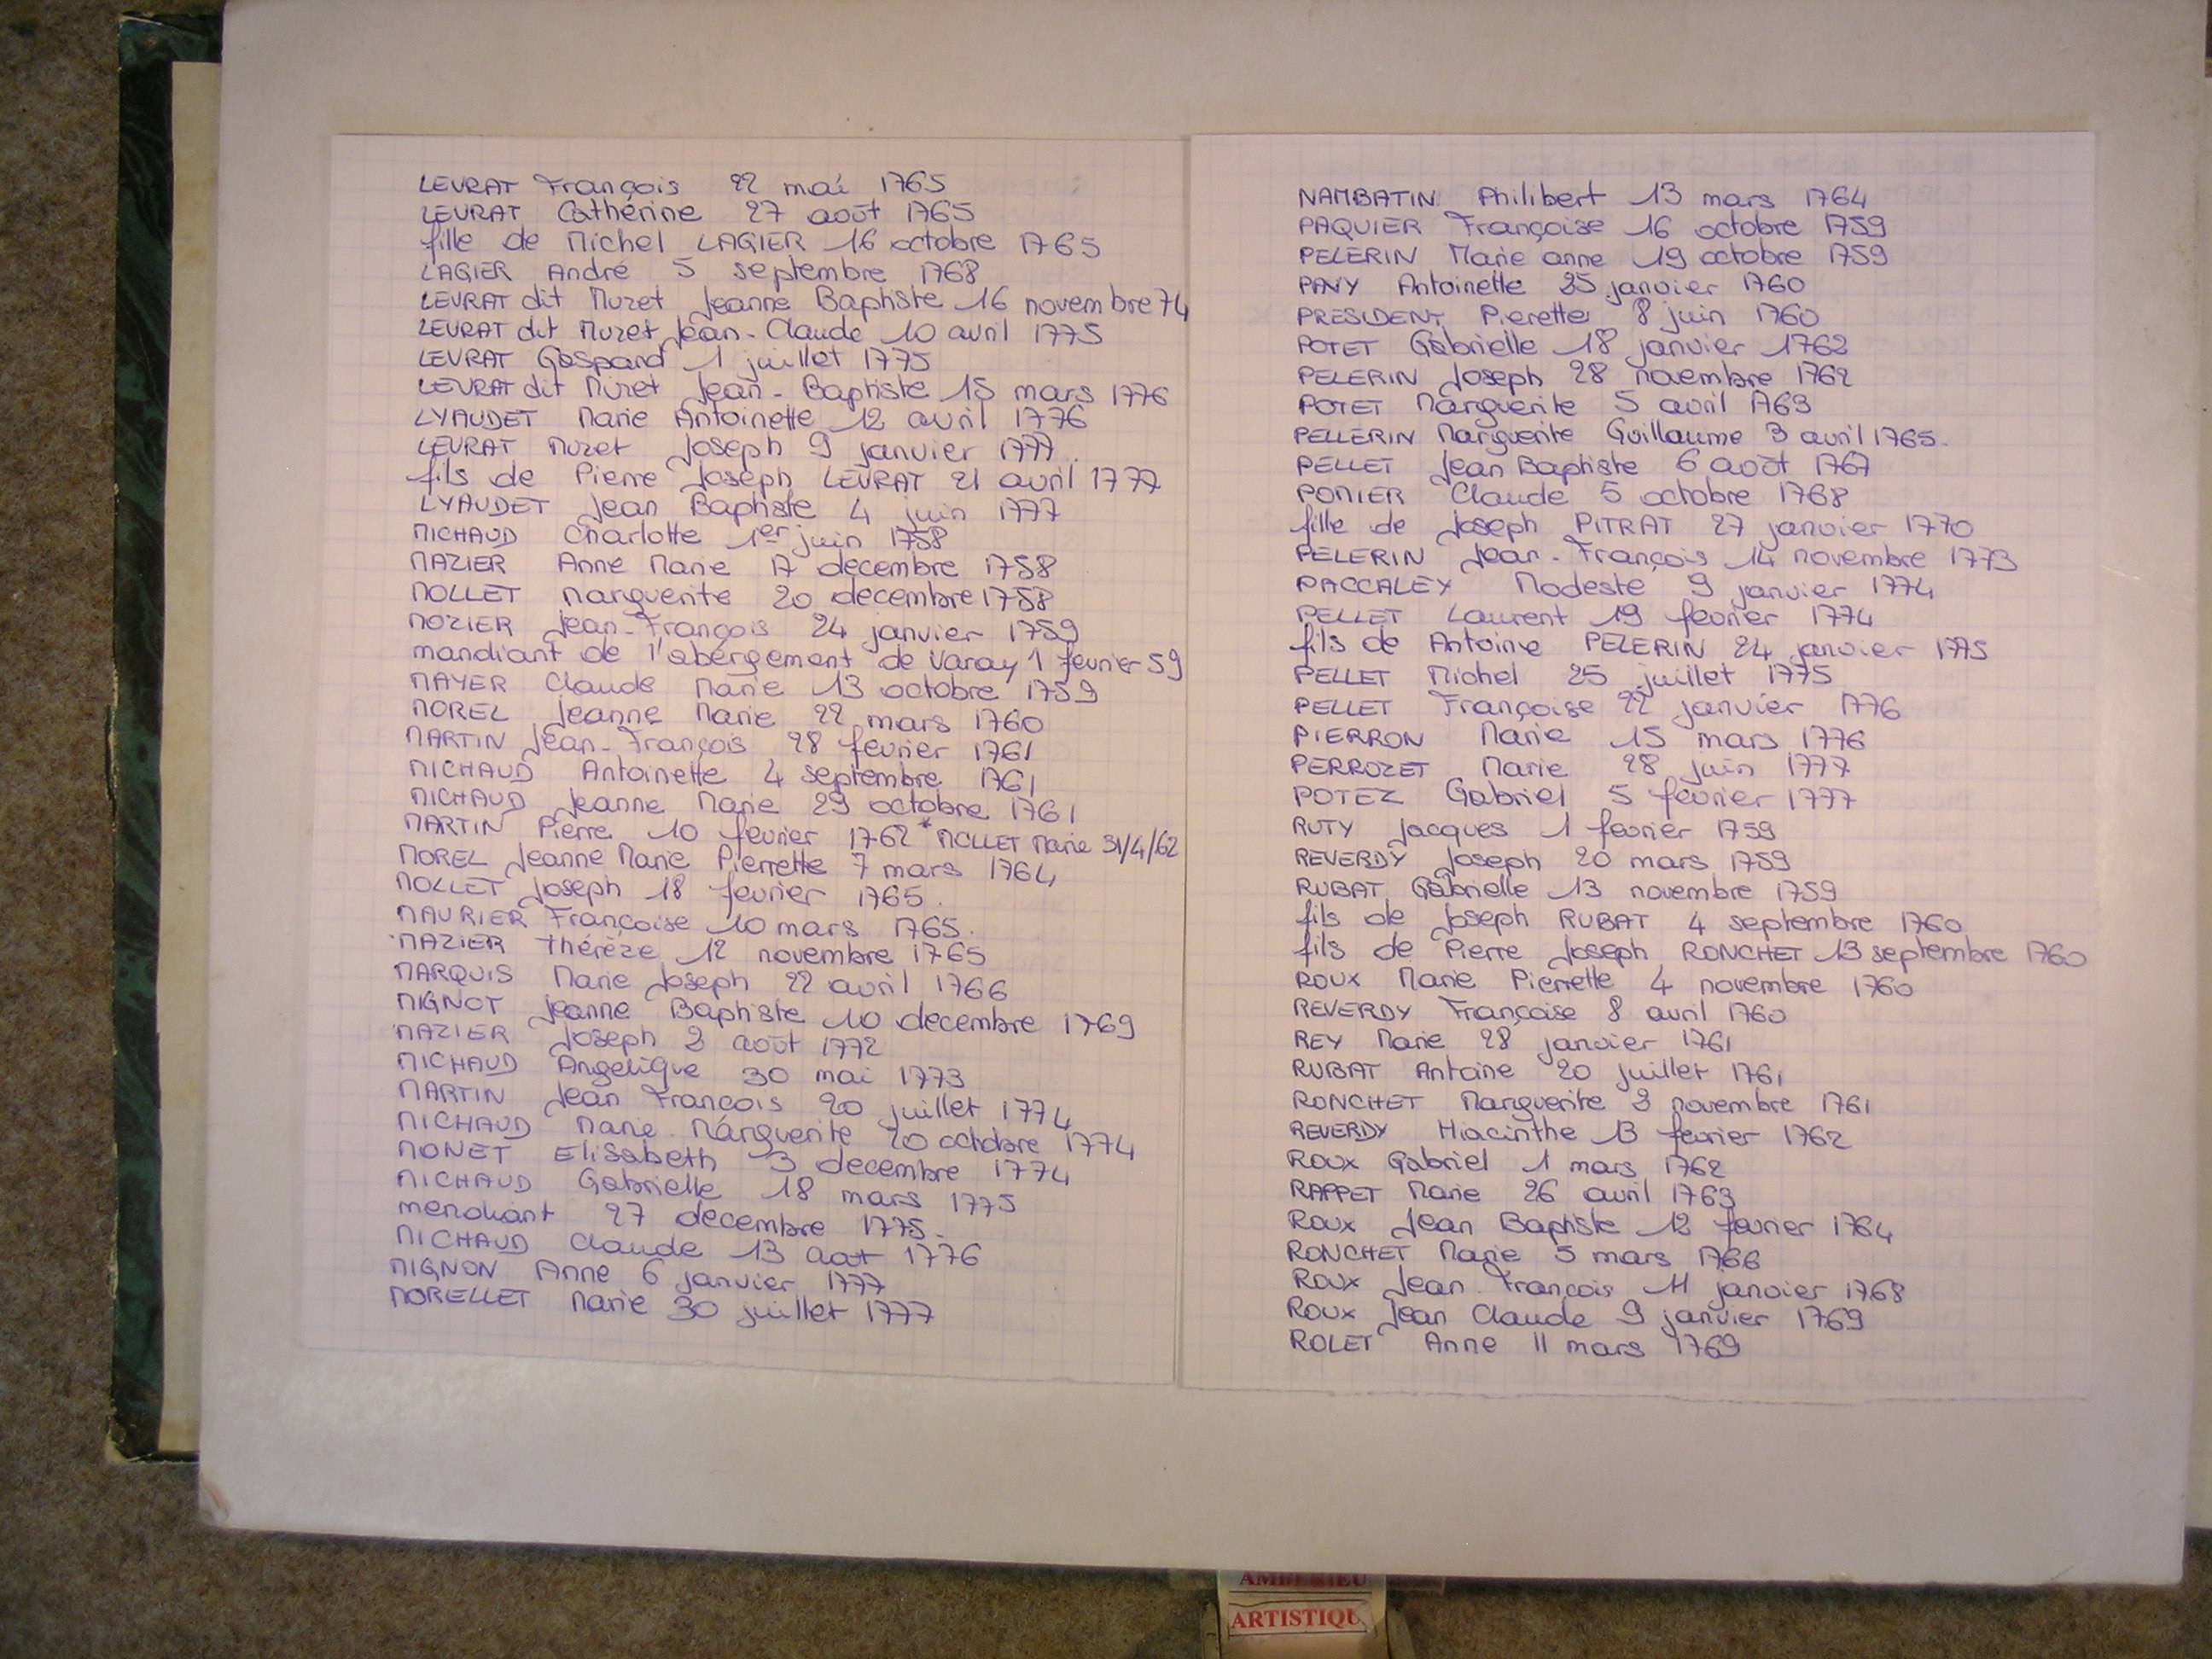 LEVRAT François 22 mai 1765
LEVRAT Cathérine 27 août 1765
fille de Michel LAGIER 16 octobre 1765
LAGIER André 5 septembre 1768
LEVRAT dit Muzet Jeanne Baptiste 16 novembre 74
LEVRAT dit Muzet Jean-Claude 10 avril 1775
LEVRAT Gaspard 1 juillet 1775
LEVRAT dit Muzet Jean-Baptiste 15 mars 1776
LYAUDET Marie Antoinette 12 avril 1776
LEVRAT Muzet Joseph 9 janvier 1777.
fils de Pierre Joseph LEVRAT 21 avril 1777
LYAUDET Jean Baptiste 4 juin 1777
MICHAUD Charlotte 1er juin 1758
MAZIER Anne Marie 17 decembre 1758
MOLLET Marguerite 20 decembre 1758
MOZIER Jean-François 24 janvier 1759
mandiant de l'abergement de Varay 1 fevrier 59
MAYER Claude Marie 13 octobre 1759
MOREL Jeanne Marie 22 mars 1760
MARTIN Jean-François 28 fevrier 1761
MICHAUD Antoinette 4 septembre 1761
MICHAUD Jeanne Marie 29 octobre 1761
MARTIN Pierre 10 fevrier 1762 * MOLLET Marie 31/4/62
MOREL Jeanne Marie Pierrette 7 mars 1764
MOLLET Joseph 18 fevrier 1765.
MAURIER Françoise 10 mars 1765.
MAZIER thérèze 12 novembre 1765
MARQUIS Marie Joseph 22 avril 1766
MIGNOT Jeanne Baptiste 10 decembre 1769
MAZIER Joseph 2 août 1772
MICHAUD Angelique 30 mai 1773
MARTIN Jean François 20 juillet 1774
MICHAUD Marie Marguerite 20 octobre 1774
MONET Elisabeth 3 decembre 1774
MICHAUD Gabrielle 18 mars 1775
mendiant 27 decembre 1775.
MICHAUD Claude 13 août 1776
MIGNON Anne 6 janvier 1777
MORELLET Marie 30 juillet 1777
NAMBATIN Philibert 13 mars 1764
PAQUIER Françoise 16 octobre 1759
PELERIN Marie anne 19 octobre 1759
PAVY Antoinette 25 janvier 1760
PRESIDENT Pierette 8 juin 1760
POTET Gabrielle 18 janvier 1762
PELERIN Joseph 28 novembre 1762
POTET Marguerite 5 avril 1763
PELLERIN Marguerite Guillaume 3 avril 1765.
PELLET Jean Baptiste 6 août 1767
POMIER Claude 5 octobre 1768
fille de Joseph PITRAT 27 janvier 1770
PELERIN Jean-François 14 novembre 1773
PACCALEY Modeste 9 janvier 1774
PELLET Laurent 19 fevrier 1774
fils de Antoine PELERIN 24 janvier 1775
PELLET Michel 25 juillet 1775
PELLET Françoise 22 janvier 1776
PIERRON Marie 15 mars 1776
PERROZET Marie 28 juin 1777
POTEZ Gabriel 5 fevrier 1777
RUTY Jacques 1 fevrier 1759
REVERDY Joseph 20 mars 1759
RUBAT Gabrielle 13 novembre 1759
fils de Joseph RUBAT 4 septembre 1760
fils de Pierre Joseph RONCHET 13 septembre 1760
ROUX Marie Pierrette 4 novembre 1760
REVERDY Françoise 8 avril 1760
REY Marie 28 janvier 1761
RUBAT Antoine 20 juillet 1761
RONCHET Marguerite 2 novembre 1761
REVERDY Hiacinthe 13 fevrier 1762
ROUX Gabriel 1 mars 1762
RAPPET Marie 26 avril 1763
ROUX Jean Baptiste 12 fevrier 1764
RONCHET Marie 5 mars 1766
ROUX Jean François 11 janvier 1768
ROUX Jean Claude 9 janvier 1769
ROLET Anne 11 mars 1769
AMBERIEU
ARTISTIQU